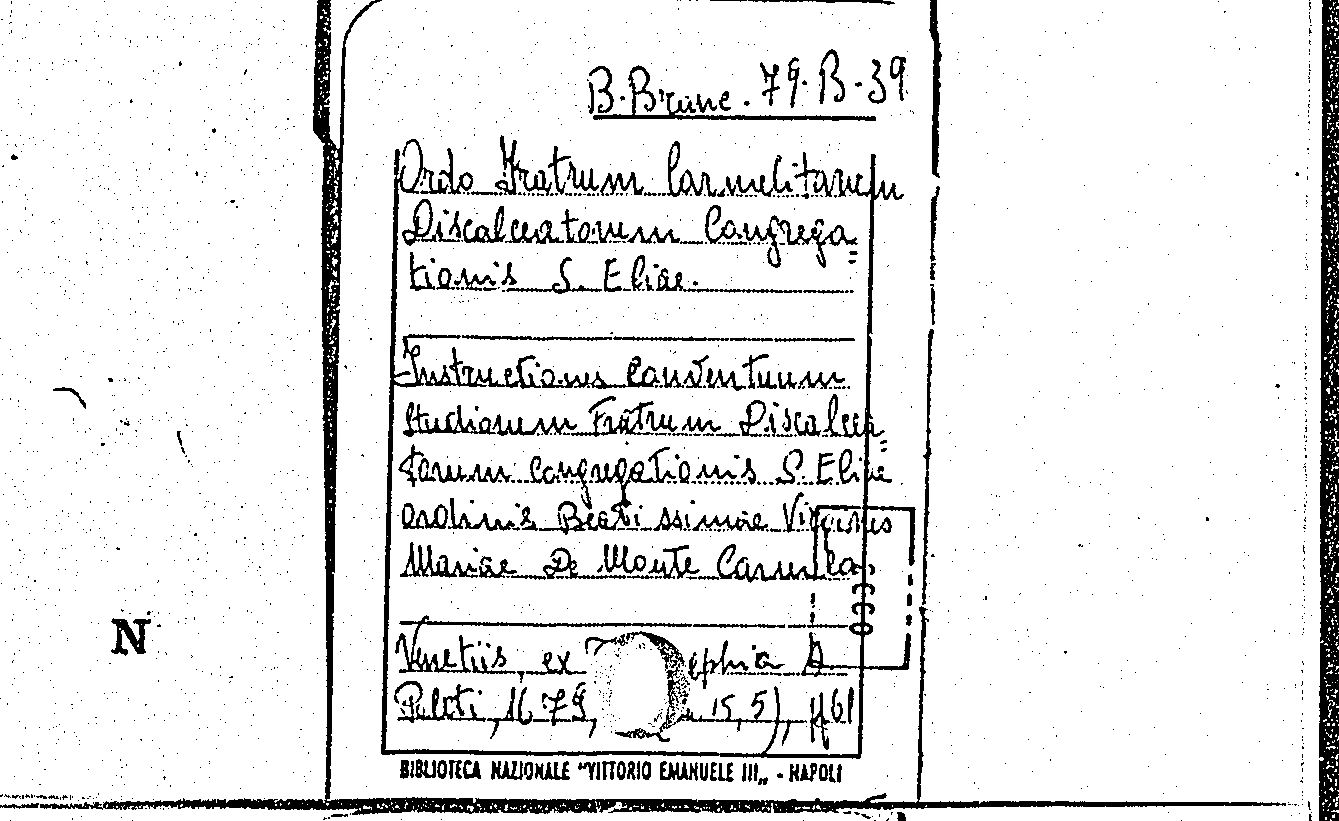 B. Branc. 79. B. 39
Ordo Fratrum Carmelitarum
Discalceatorum Congrega=
tionis S. Eliae.
Instructiones conventuum
studiorum Fratrum Discalcea=
torum congregationis S. Eliae
ordinis Beatissimae Virginis
Mariae De Monte Carmelo.
Venetiis, ex
Poleti, 1679, 15,5), pp 61
BIBLIOTECA NAZIONALE "VITTORIO EMANUELE III„ - NAPOLI
N